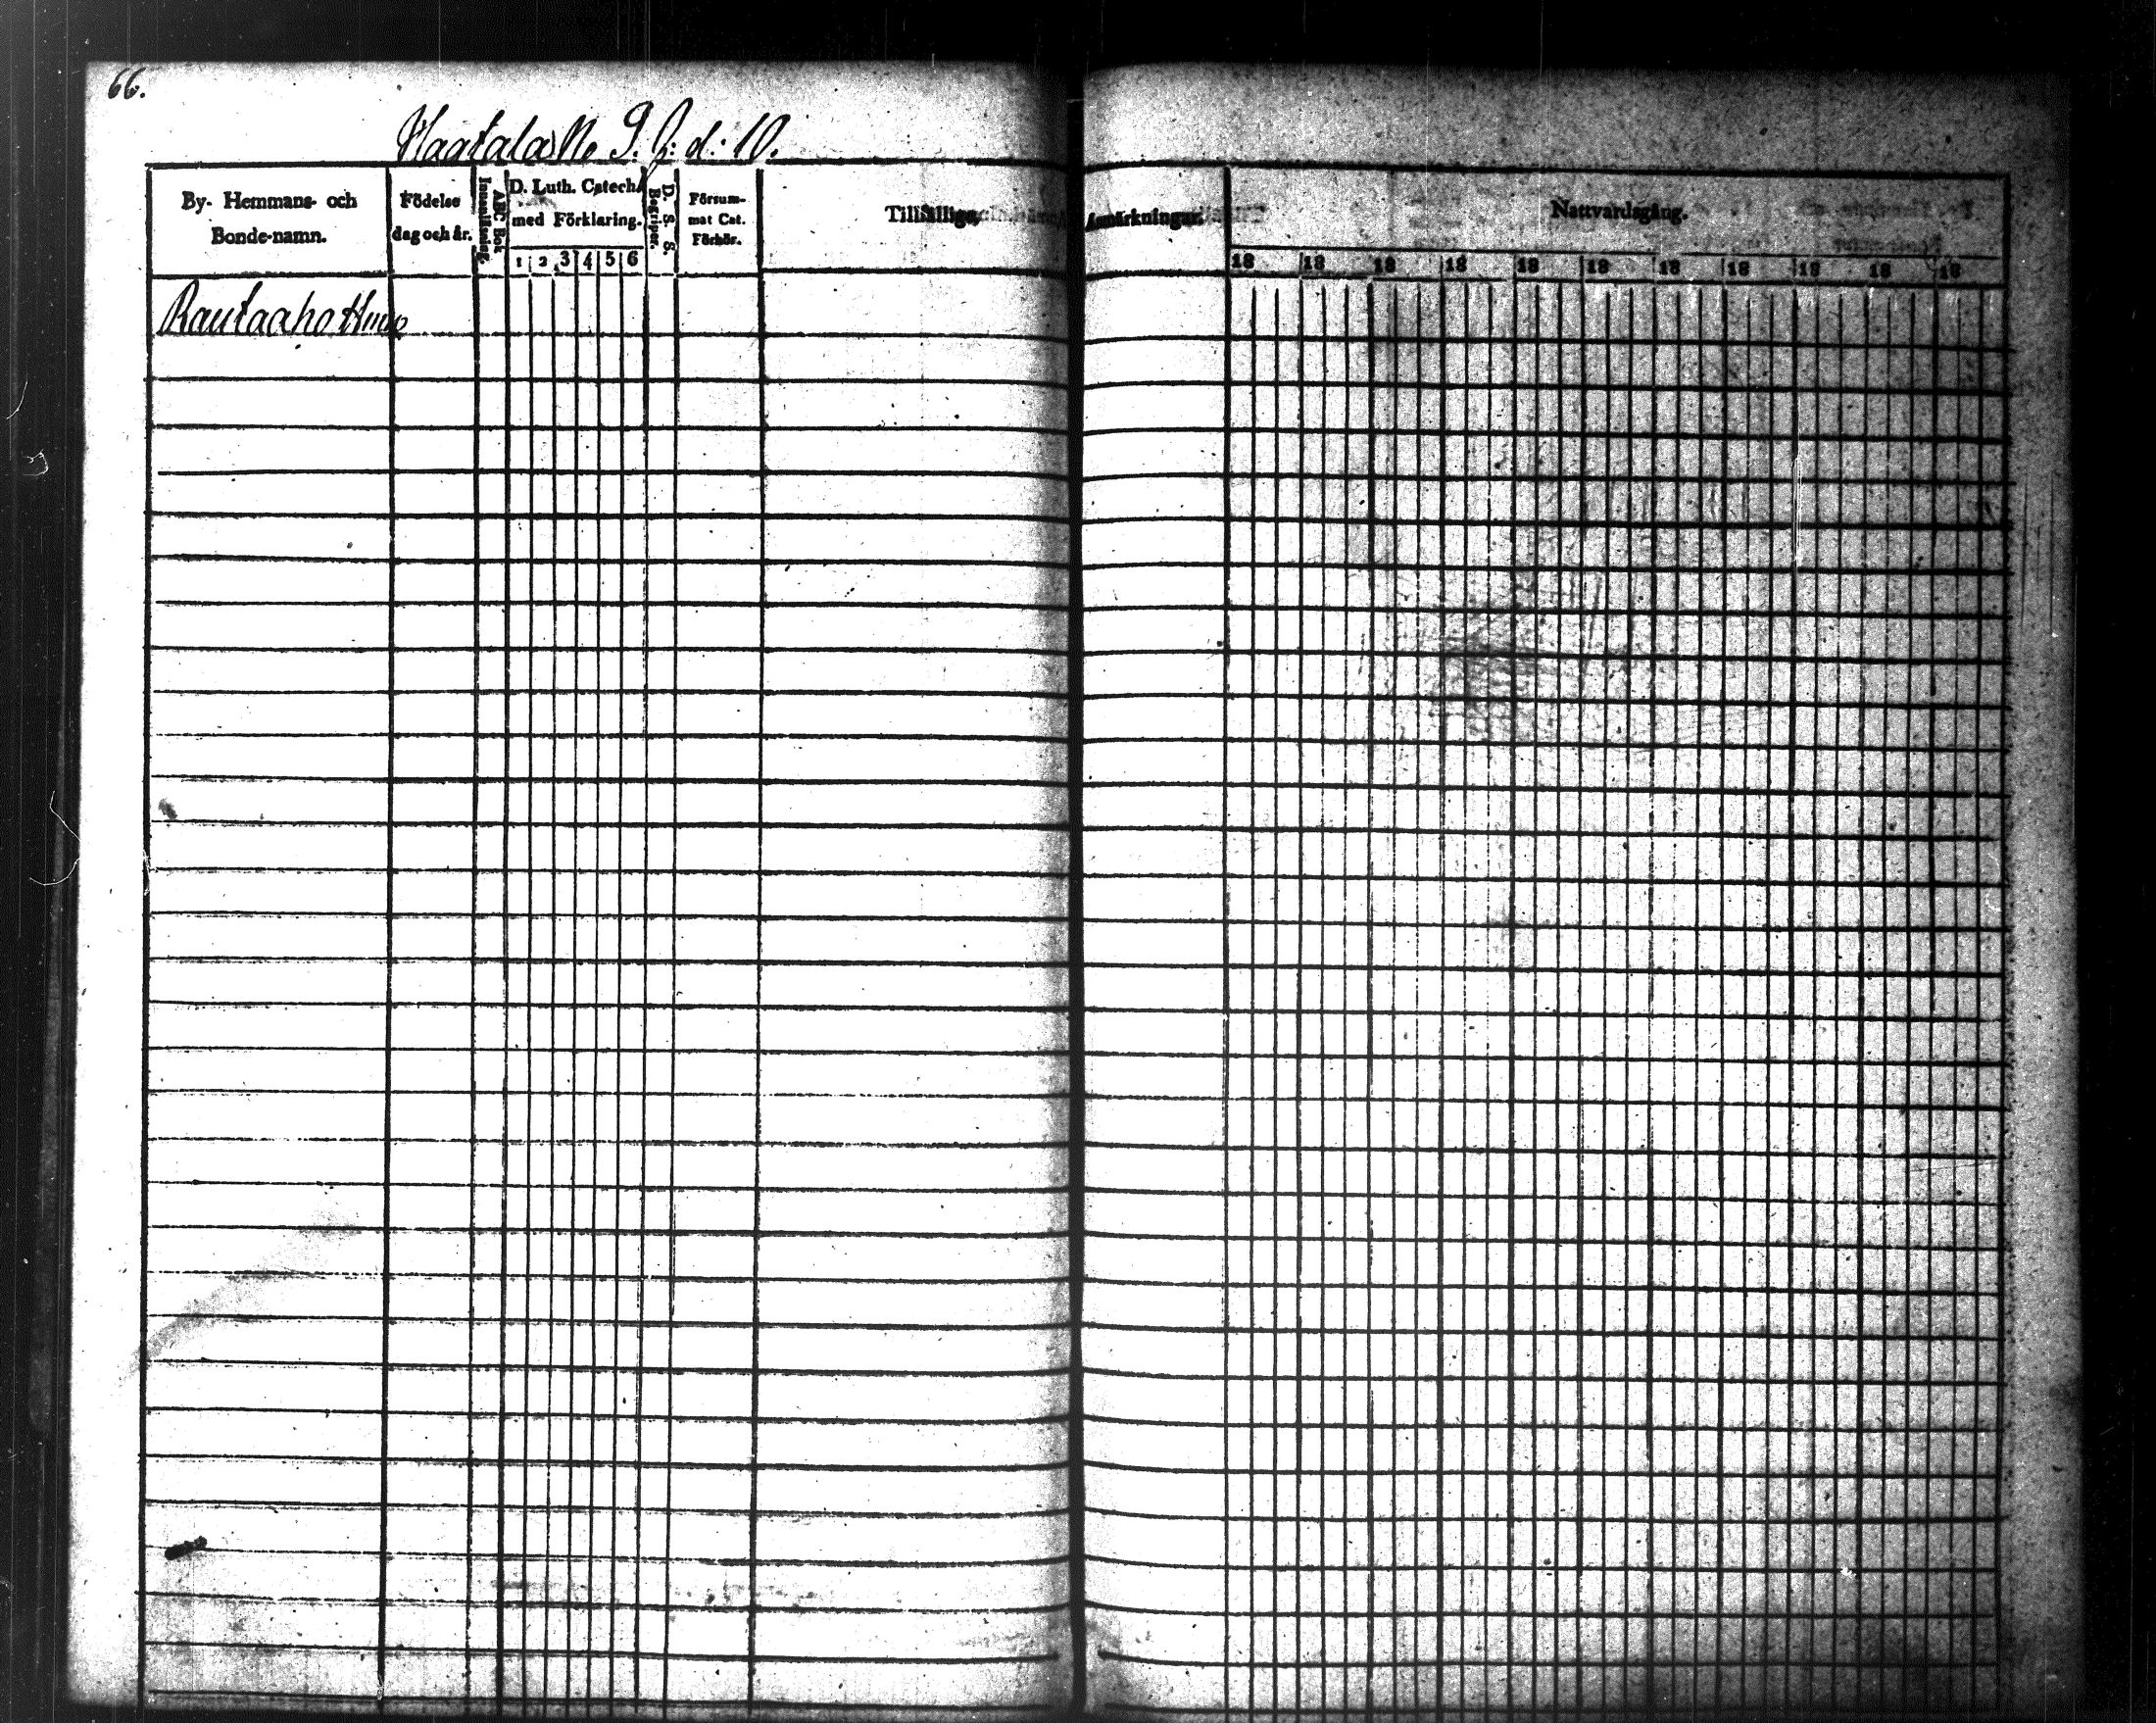 66.
Haatala No 9. J: d: 10.
By- Hemmans- och
Bonde-namn.
Födelse
dag och år.
ABC Bok
Innanläsning.
D. Luth. Catech.
med Förklaring.
1 2 3 4 5 6
D. S. S.
Begriper.
Försum-
mat Cat.
Förhör.
Tillfällige Anmärkningar.
Nattvardsgång.
18 18 18 18 18 18 18 18 18 18 18
Rautaaho